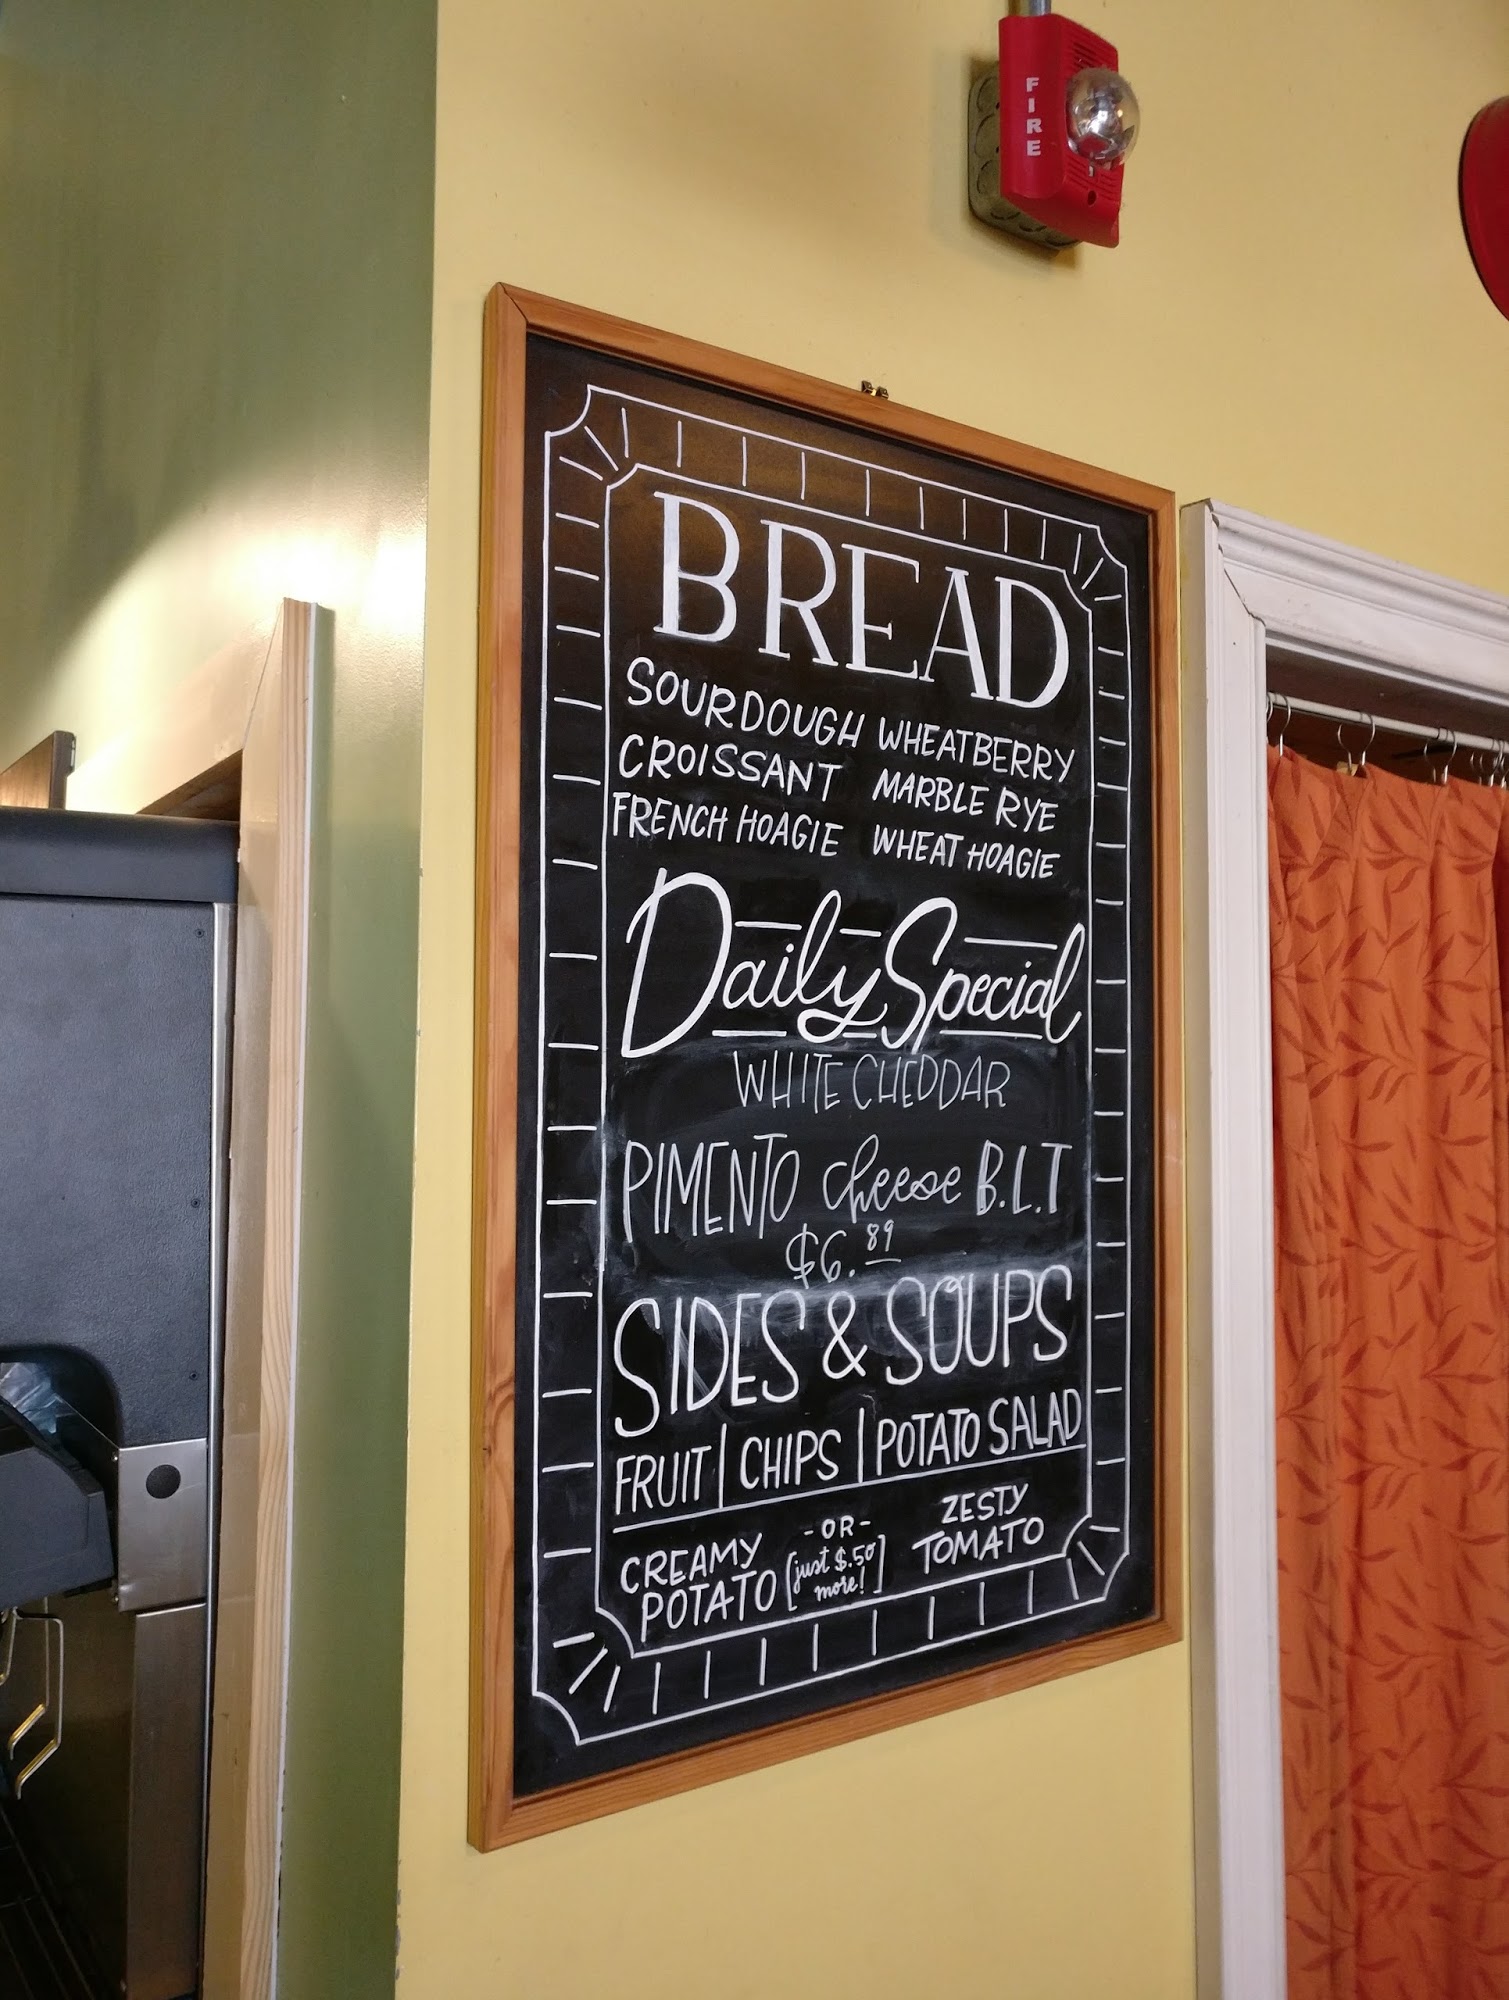 FIRE
BREAD
SOURDOUGH WHEATBERRY
CROISSANT MARBLE RYE
FRENCH HOAGIE WHEAT HOAGIE
Daily Special
WHITE CHEDDAR
PIMENTO cheese B.L.T
$6.89
SIDES & SOUPS
FRUIT | CHIPS | POTATO SALAD
CREAMY POTATO
- OR -
[just $.50 more!]
ZESTY TOMATO